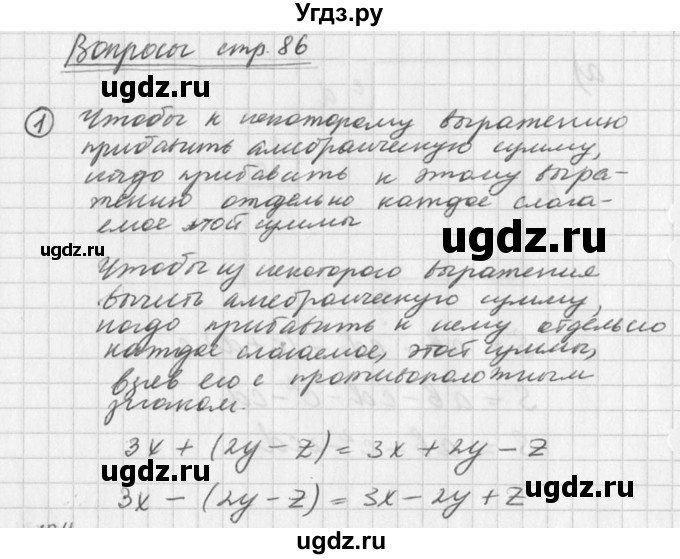 Угдз.ру
Вопросы стр. 86
1 Чтобы к некоторому выражению
прибавить алгебраическую сумму,
надо прибавить к этому выра-
жению отдельно каждое слага-
емое этой суммы
Чтобы из некоторого выражения
вычесть алгебраическую сумму,
надо прибавить к нему отдельно
каждое слагаемое, этой суммы,
взяв его с противоположным
знаком.
3x + (2y - z) = 3x + 2y - z
3x - (2y - z) = 3x - 2y + z
ugdz.ru
ugdz.ru
ugdz.ru
ugdz.ru
ugdz.ru
ugdz.ru
ugdz.ru
ugdz.ru
ugdz.ru